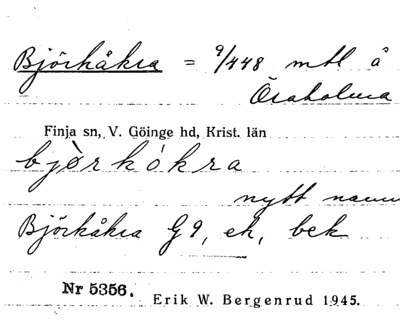 Björkåkra = 9/448 mtl å
Öraholma
Finja sn, V. Göinge hd, Krist. län
bjòrkókra
nytt namn
Björkåkra G9, ek, bek
Nr 5356. Erik W. Bergenrud 1945.